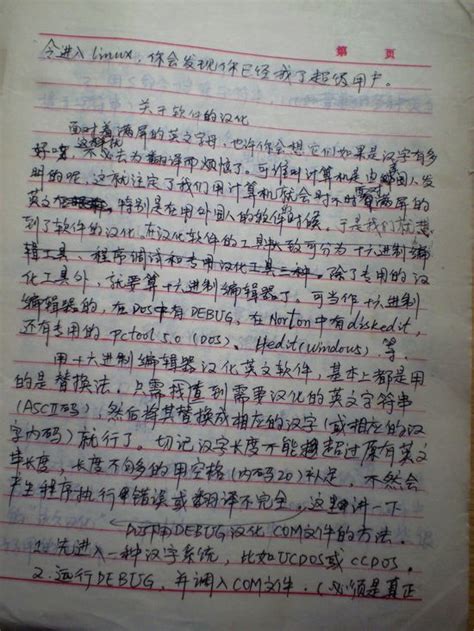 第 页
令进入linux,你会发现你已经成了超级用户。
关于软件的汉化
面对着满屏的英文字母,也许你会想它们如果是汉字有多
好呀,不必去为翻译而烦恼了。可谁叫计算机是由外国人发
明的呢,这就注定了我们用计算机就会时不时面对满屏的
英文,特别是在用外国人的软件时候。于是我们就想
到了软件的汉化,在汉化软件的工具大致可分为十六进制编
辑工具、程序调试和专用汉化工具三种。除了专用的汉
化工具外,就要算十六进制编辑器了。可当作十六进制
编辑器的,在DOS中有DEBUG,在Norton中有diskedit,
还有专用的pctool 5.0 (DOS)、Hedit(windows)等.
用十六进制编辑器汉化英文软件,基本上都是用
的是替换法,只需找到需要汉化的英文字符串
(ASCII码),然后将其替换成相应的汉字(或相应的汉
字内码)就行了。切记汉字长度不能超过原有英文
串长度,长度不够多的用空格(内码20)补足,不然会
产生程序执行错误或翻译不完全。这里讲一下
用DEBUG汉化COM文件的方法.
1.先进入一种汉字系统,比如UCDOS或CCDOS。
2.运行DEBUG,并调入COM文件.(必须是真正